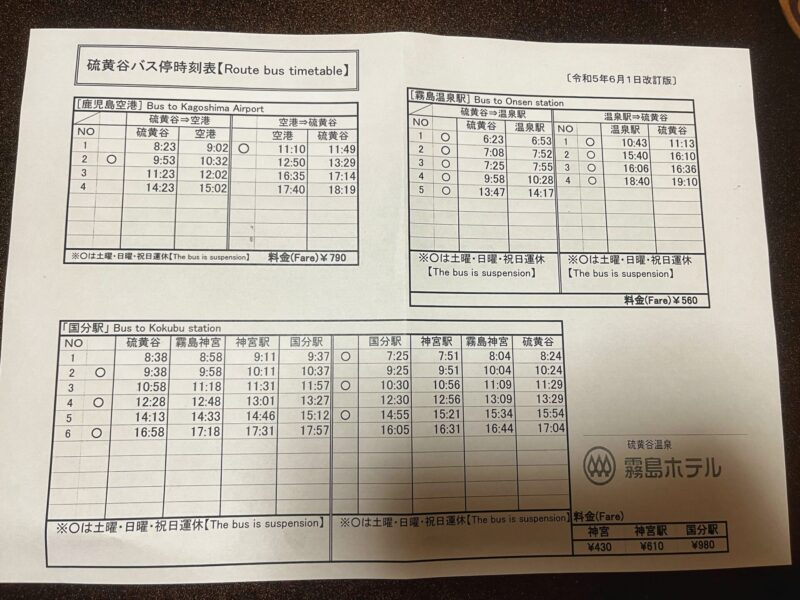 硫黄谷バス停時刻表【Route bus timetable】
〔令和5年6月1日改訂版〕
[鹿児島空港] Bus to Kagoshima Airport
硫黄谷⇒空港 空港⇒硫黄谷
NO 硫黄谷 空港 空港 硫黄谷
1 8:23 9:02 〇 11:10 11:49
2 〇 9:53 10:32 12:50 13:29
3 11:23 12:02 16:35 17:14
4 14:23 15:02 17:40 18:19
※〇は土曜・日曜・祝日運休【The bus is suspension】 料金(Fare)¥790
[霧島温泉駅] Bus to Onsen station
硫黄谷⇒温泉駅 温泉駅⇒硫黄谷
NO 硫黄谷 温泉駅 NO 温泉駅 硫黄谷
1 〇 6:23 6:53 1 〇 10:43 11:13
2 〇 7:08 7:52 2 〇 15:40 16:10
3 〇 7:25 7:55 3 〇 16:06 16:36
4 〇 9:58 10:28 4 〇 18:40 19:10
5 〇 13:47 14:17
※〇は土曜・日曜・祝日運休 ※〇は土曜・日曜・祝日運休
【The bus is suspension】 【The bus is suspension】
料金(Fare)¥560
「国分駅」 Bus to Kokubu station
NO 硫黄谷 霧島神宮 神宮駅 国分駅 国分駅 神宮駅 霧島神宮 硫黄谷
1 8:38 8:58 9:11 9:37 〇 7:25 7:51 8:04 8:24
2 〇 9:38 9:58 10:11 10:37 9:25 9:51 10:04 10:24
3 10:58 11:18 11:31 11:57 〇 10:30 10:56 11:09 11:29
4 〇 12:28 12:48 13:01 13:27 12:30 12:56 13:09 13:29
5 14:13 14:33 14:46 15:12 〇 14:55 15:21 15:34 15:54
6 〇 16:58 17:18 17:31 17:57 16:05 16:31 16:44 17:04
※〇は土曜・日曜・祝日運休【The bus is suspension】 ※〇は土曜・日曜・祝日運休【The bus is suspension】
硫黄谷温泉
霧島ホテル
料金(Fare)
神宮 神宮駅 国分駅
¥430 ¥610 ¥980